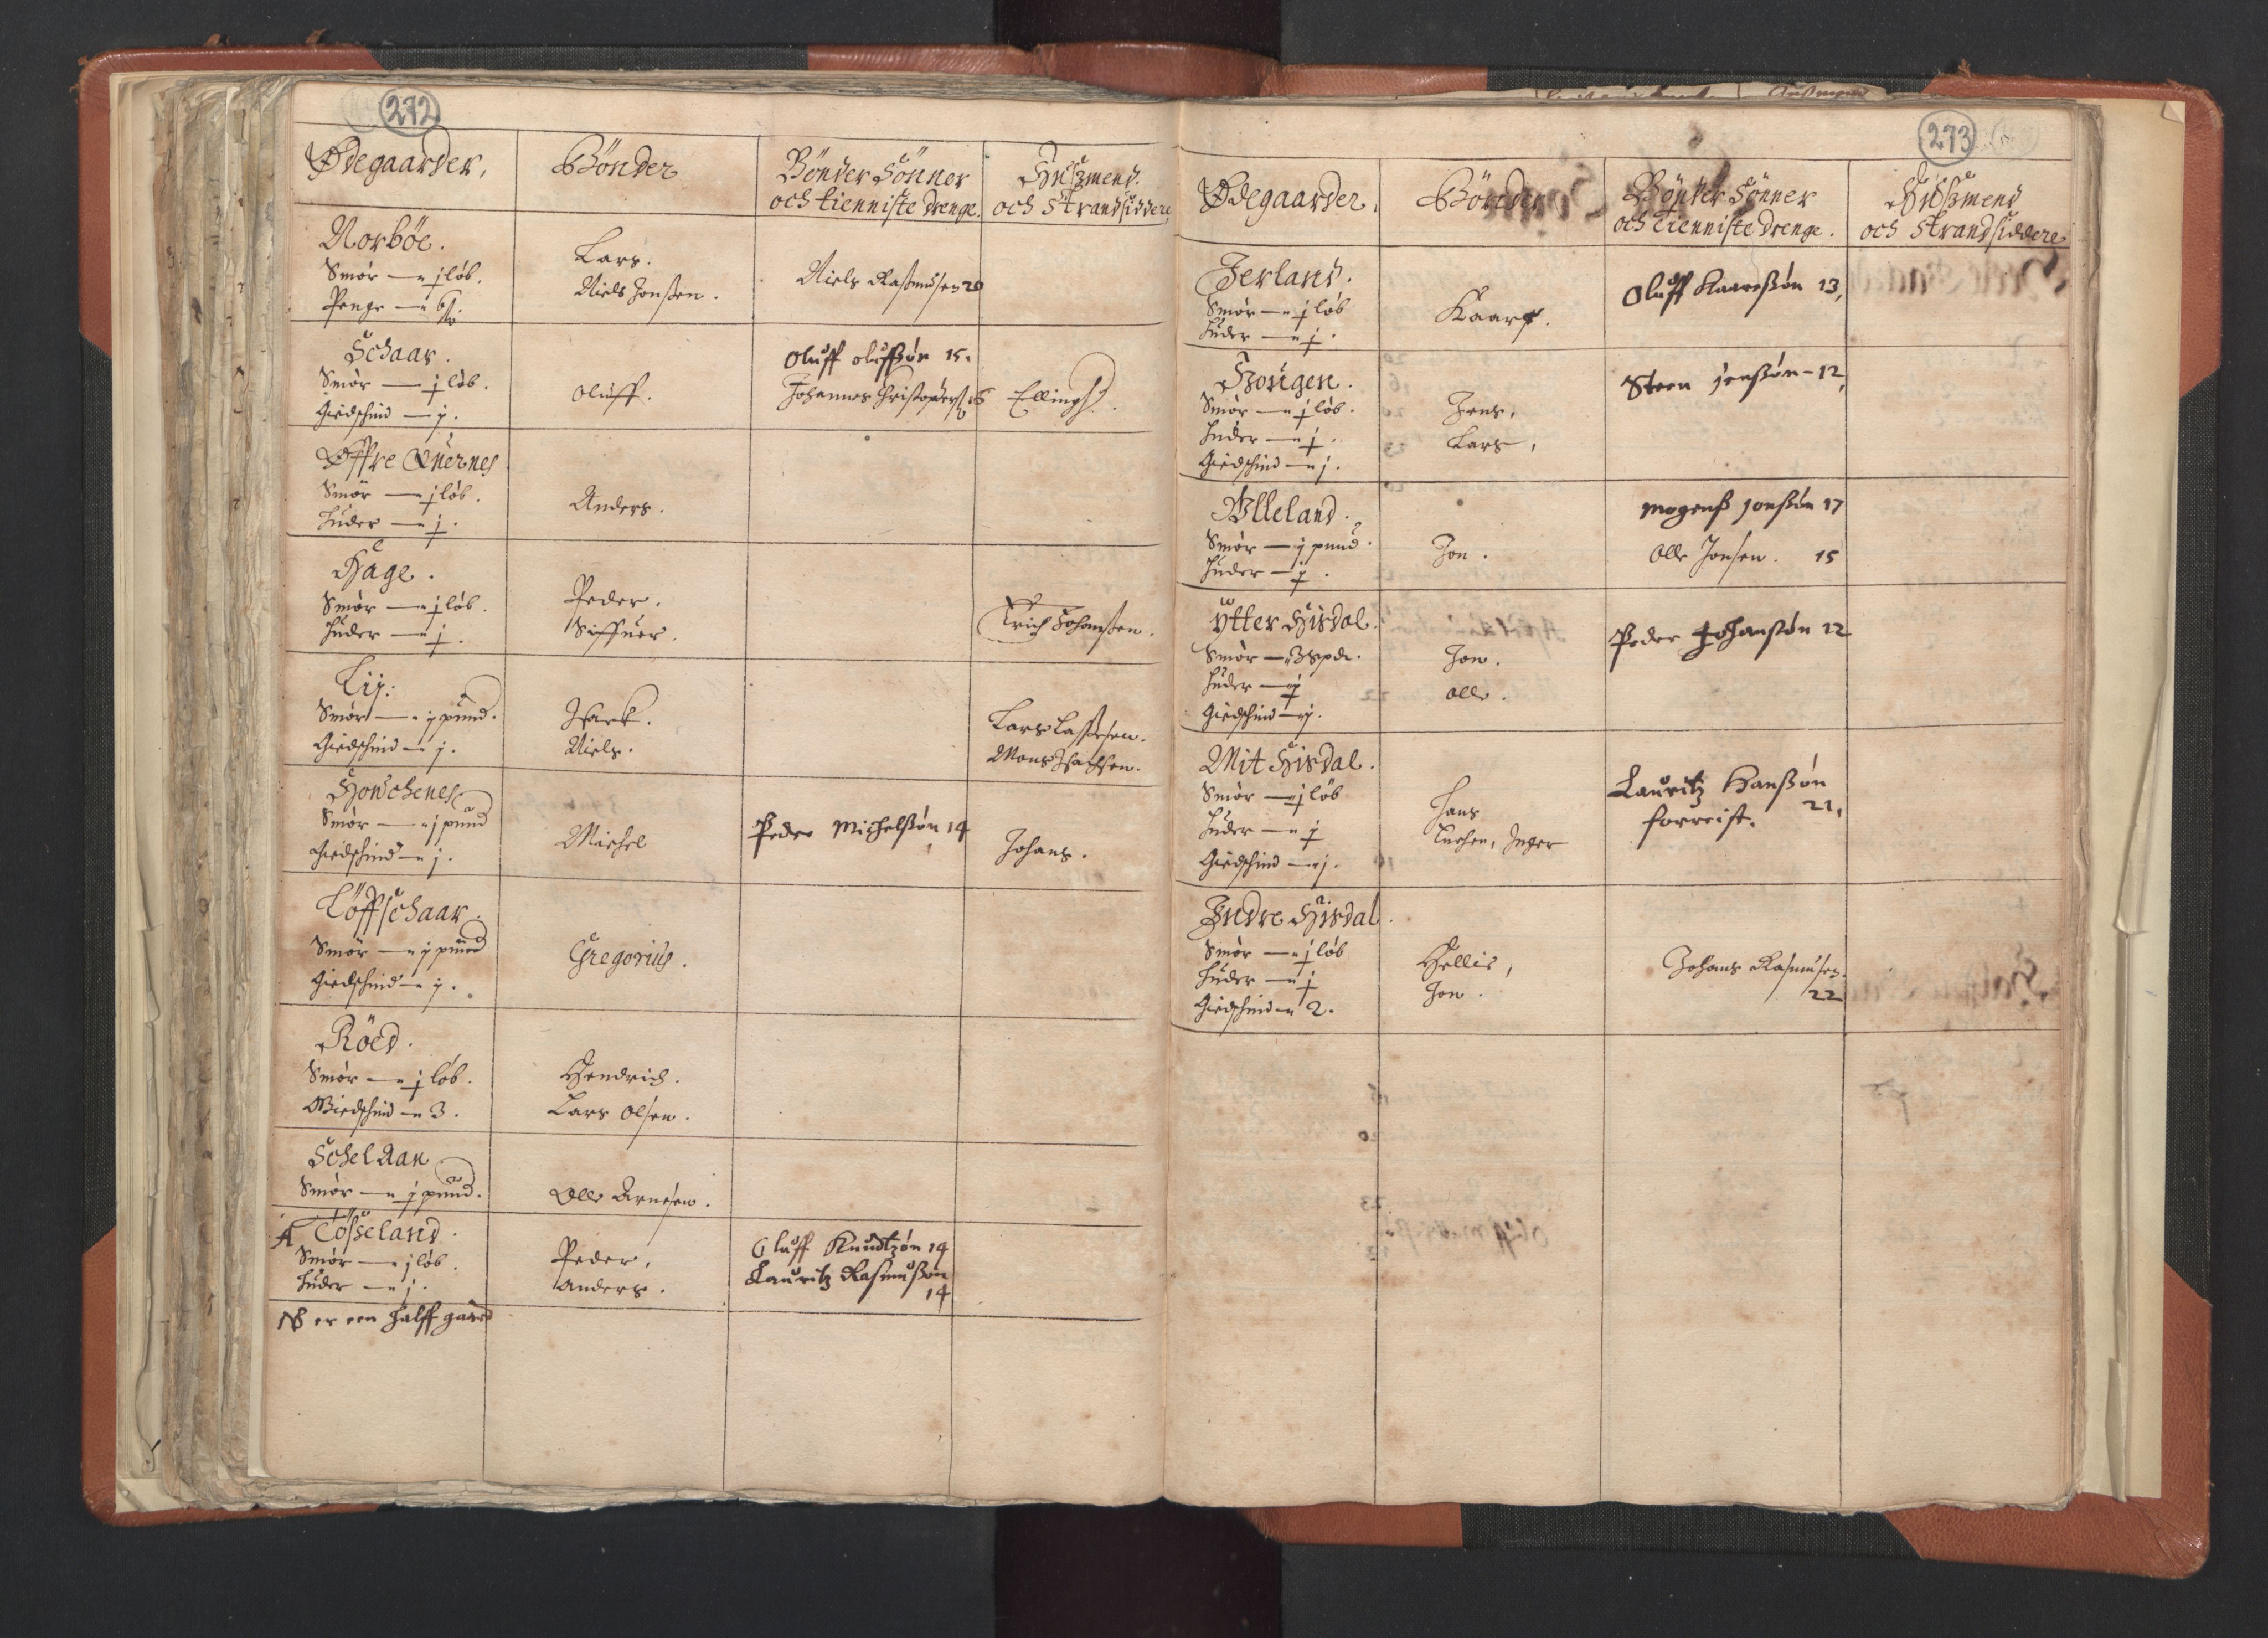 272
Ødegaarder.
Bönder
Bönder Sönner
och tienniste drenge.
Huszmend.
och Strandsiddere
Norböe.
Smör — j löb.
Penge — 6 ß.
Lars.
Niels Jonßen.
Niels Rasmusen 20
Schaar.
Smör — j löb.
Giedschind — j.
Oluff.
Oluff Olufßön 15.
Johannes Christophers: 16
Elling
Öffre Quernes
Smör — j löb.
Huder — j.
Anders.
Hage.
Smör — j löb.
Huder — j.
Peder.
Siffuer.
Erich Johanßen.
Lij:
Smör — j pund.
Giedschind — j.
Isack.
Niels.
Lars Lassesen.
Mons Isachsen.
Howchenes
Smör — j pund
Giedschind — j.
Michel
Peder Michelßön 14
Johans.
Löffschaar.
Smör — j pund
Giedschind — j.
Gregorius.
Röed.
Smör — j löb.
Giedschind — 3.
Hendrich.
Lars Olsen.
Schelaan
Smör — j pund.
Olle Arnesen.
A Tösseland.
Smör — j löb.
Huder — j.
Peder,
Anders.
Oluff Knudtzön 14
Lauritz Rasmußön
14
NB er een halff gaard
273
Ødegaarder.
Bönder
Bönder Sönner
och tienniste drenge.
Huszmend
och Strandsiddere
Jerland.
Smör — j löb
Huder — j.
Kaare.
Oluff Kaareßön 13,
Hougen.
Smör — j löb.
Huder — j.
Giedschind — j.
Jens,
Lars,
Steen Jenßön - 12,
Ulleland.
Smör — j pund.
Huder — j.
Jon.
Mogenß Jonßön 17
Olle Jonsen. 15
Ytter Hisdal.
Smör — 3 spd.
Huder — j
Giedschind — j.
Jon.
Olle.
Peder Johanßön 12
Mit Hisdal.
Smör — j löb
Huder — j
Giedschind — j.
Hans
Enchen, Inger
Lauritz Hanßön
forreist. 21,
Indre Hisdal.
Smör — j löb
Huder — j
Giedschind — 2.
Hellie,
Jon.
Johans Rasmusen.
22